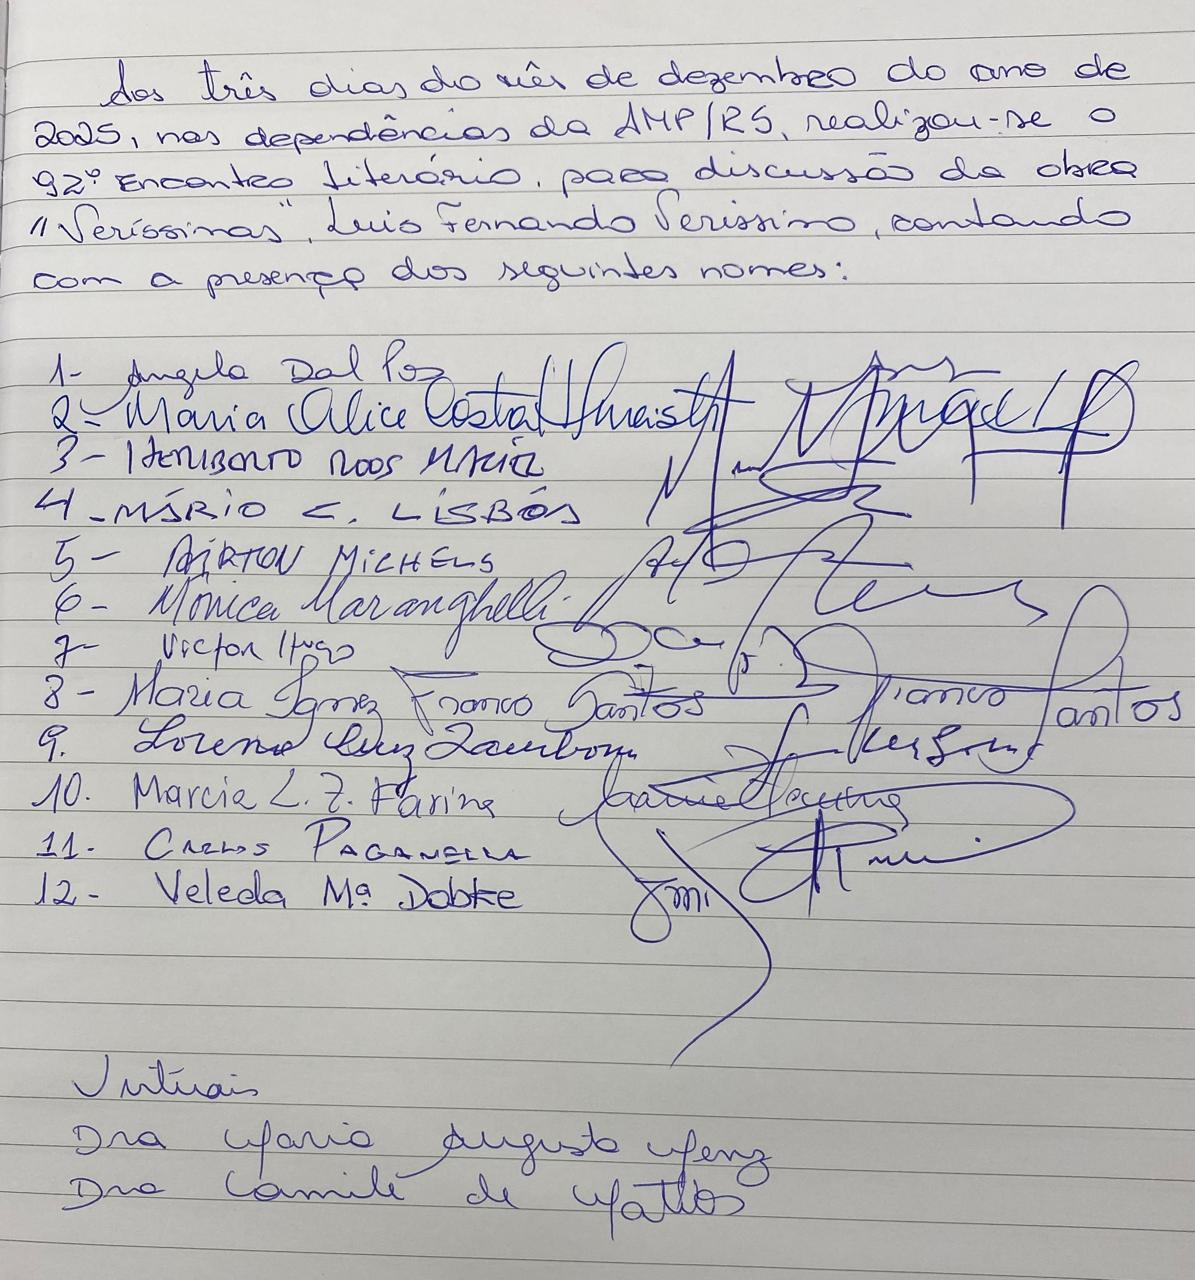 Aos três dias do mês de dezembro do ano de
2025, nas dependências da AMP/RS, realizou-se o
92º Encontro Literário, para discussão da obra
"Veríssimas", Luis Fernando Verissimo, contando
com a presença dos seguintes nomes:
1- Angela Dal Pos
2- Maria Alice Costa
3- HERIBERTO ROOS MACIEL
4- MÁRIO C. LISBÔA
5- AIRTON MICHELS
6- Mônica Maranghelli
7- Victor Hugo
8- Maria Ignez Franco Santos Franco Santos
9. Lorena Luz Zambom
10. Marcia L. Z. Farina
11- CARLOS PAGANELLA
12- Veleda Mª Dobke
Virtuais
Dra Maria Augusta Menz
Dra Camile de Mattos